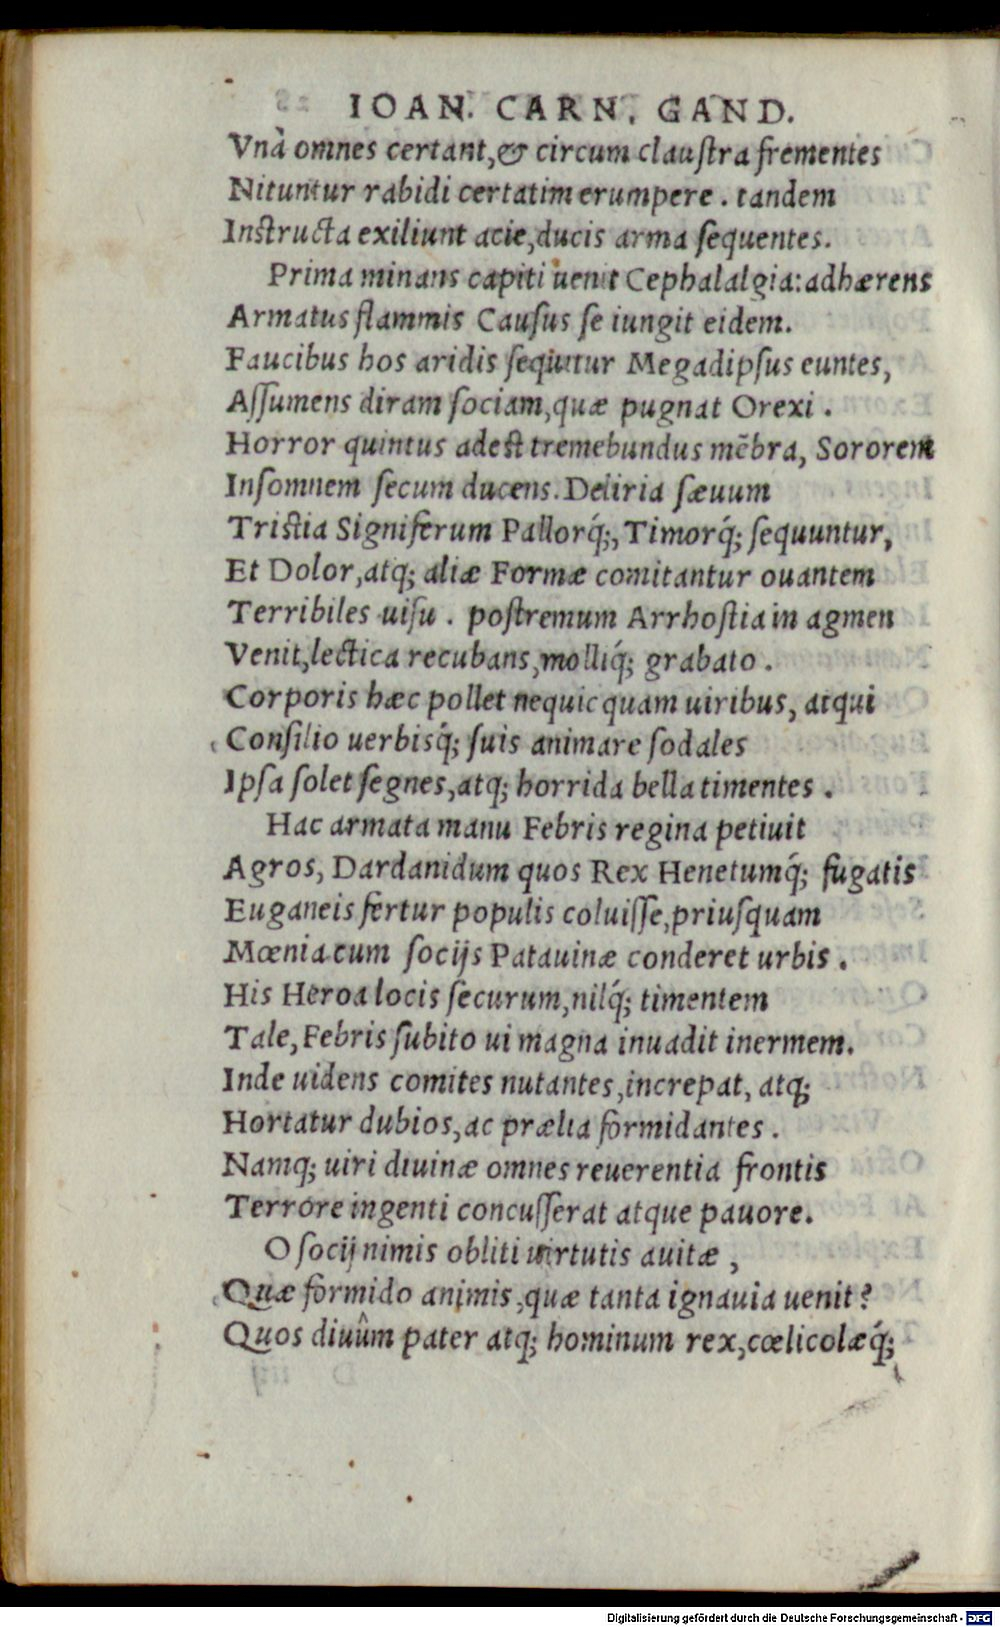 IOAN. CARN. GAND.
Vnà omnes certant,& circum clauſtra frementes
Nituntur rabidi certatim erumpere. tandem
Inſtructa exiliunt acie, ducis arma ſequentes.
Prima minans capiti uenit Cephalalgia: adhærens
Armatus flammis Cauſus ſe iungit eidem.
Faucibus hos aridis ſequitur Megadipſus euntes,
Aſſumens diram ſociam, quæ pugnat Orexi.
Horror quintus adeſt tremebundus mẽbra, Sororem
Inſomnem ſecum ducens. Deliria ſæuum
Triſtia Signiferum Pallorq́;, Timorq́; ſequuntur,
Et Dolor, atq; aliæ Formæ comitantur ouantem
Terribiles uiſu. poſtremum Arrhoſtia in agmen
Venit, lectica recubans, molliq́; grabato.
Corporis hæc pollet nequicquam uiribus, atqui
Conſilio uerbisq́; ſuis animare ſodales
Ipſa ſolet ſegnes, atq; horrida bella timentes.
Hac armata manu Febris regina petiuit
Agros, Dardanidum quos Rex Henetumq́; fugatis
Euganeis fertur populis coluiſſe, priuſquam
Mœnia cum ſocijs Patauinæ conderet urbis.
His Heroa locis ſecurum, nilq́; timentem
Tale, Febris ſubito ui magna inuadit inermem.
Inde uidens comites nutantes, increpat, atq;
Hortatur dubios, ac prælia formidantes.
Namq; uiri diuinæ omnes reuerentia frontis
Terrore ingenti concuſſerat atque pauore.
O ſocij nimis obliti uirtutis auitæ,
Quæ formido animis, quæ tanta ignauia uenit?
Quos diuûm pater atq; hominum rex, cœlicolæq́;
Digitalisierung gefördert durch die Deutsche Forschungsgemeinschaft - DFG